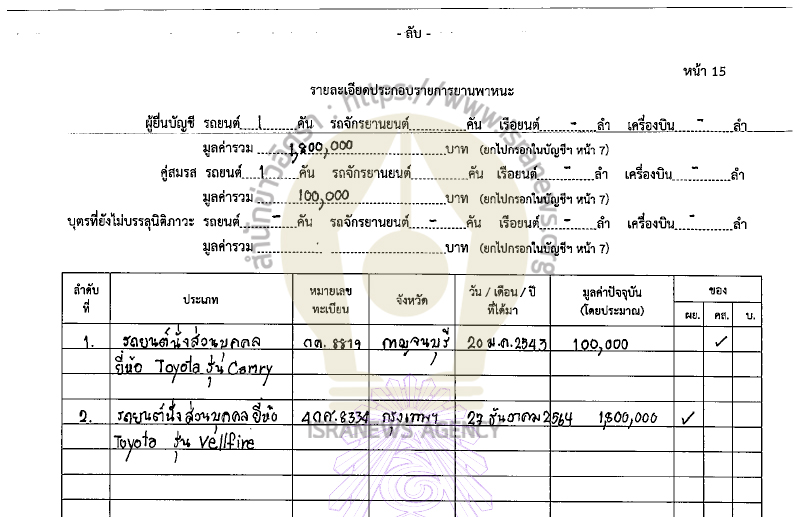 - ลับ -
หน้า 15
รายละเอียดประกอบรายการยานพาหนะ
ผู้ยื่นบัญชี รถยนต์ 1 คัน รถจักรยานยนต์ คัน เรือยนต์ - ลำ เครื่องบิน - ลำ
มูลค่ารวม 1,800,000 บาท (ยกไปกรอกในบัญชีฯ หน้า 7)
คู่สมรส รถยนต์ 1 คัน รถจักรยานยนต์ คัน เรือยนต์ - ลำ เครื่องบิน - ลำ
มูลค่ารวม 100,000 บาท (ยกไปกรอกในบัญชีฯ หน้า 7)
บุตรที่ยังไม่บรรลุนิติภาวะ รถยนต์ - คัน รถจักรยานยนต์ - คัน เรือยนต์ - ลำ เครื่องบิน - ลำ
มูลค่ารวม บาท (ยกไปกรอกในบัญชีฯ หน้า 7)
ลำดับที่ ประเภท หมายเลขทะเบียน จังหวัด วัน / เดือน / ปี ที่ได้มา มูลค่าปัจจุบัน (โดยประมาณ) ของ
ผย. คส. บ.
1. รถยนต์นั่งส่วนบุคคล 8819 กาญจนบุรี 20 ม.ค. 2543 100,000 ✓
ยี่ห้อ Toyota รุ่น Camry
2. รถยนต์นั่งส่วนบุคคล ยี่ห้อ 8334 กรุงเทพฯ 27 ธันวาคม 2564 1,800,000 ✓
Toyota รุ่น Vellfire
สำนักข่าวอิศรา : https://www.isranews.org
ISRANEWS AGENCY